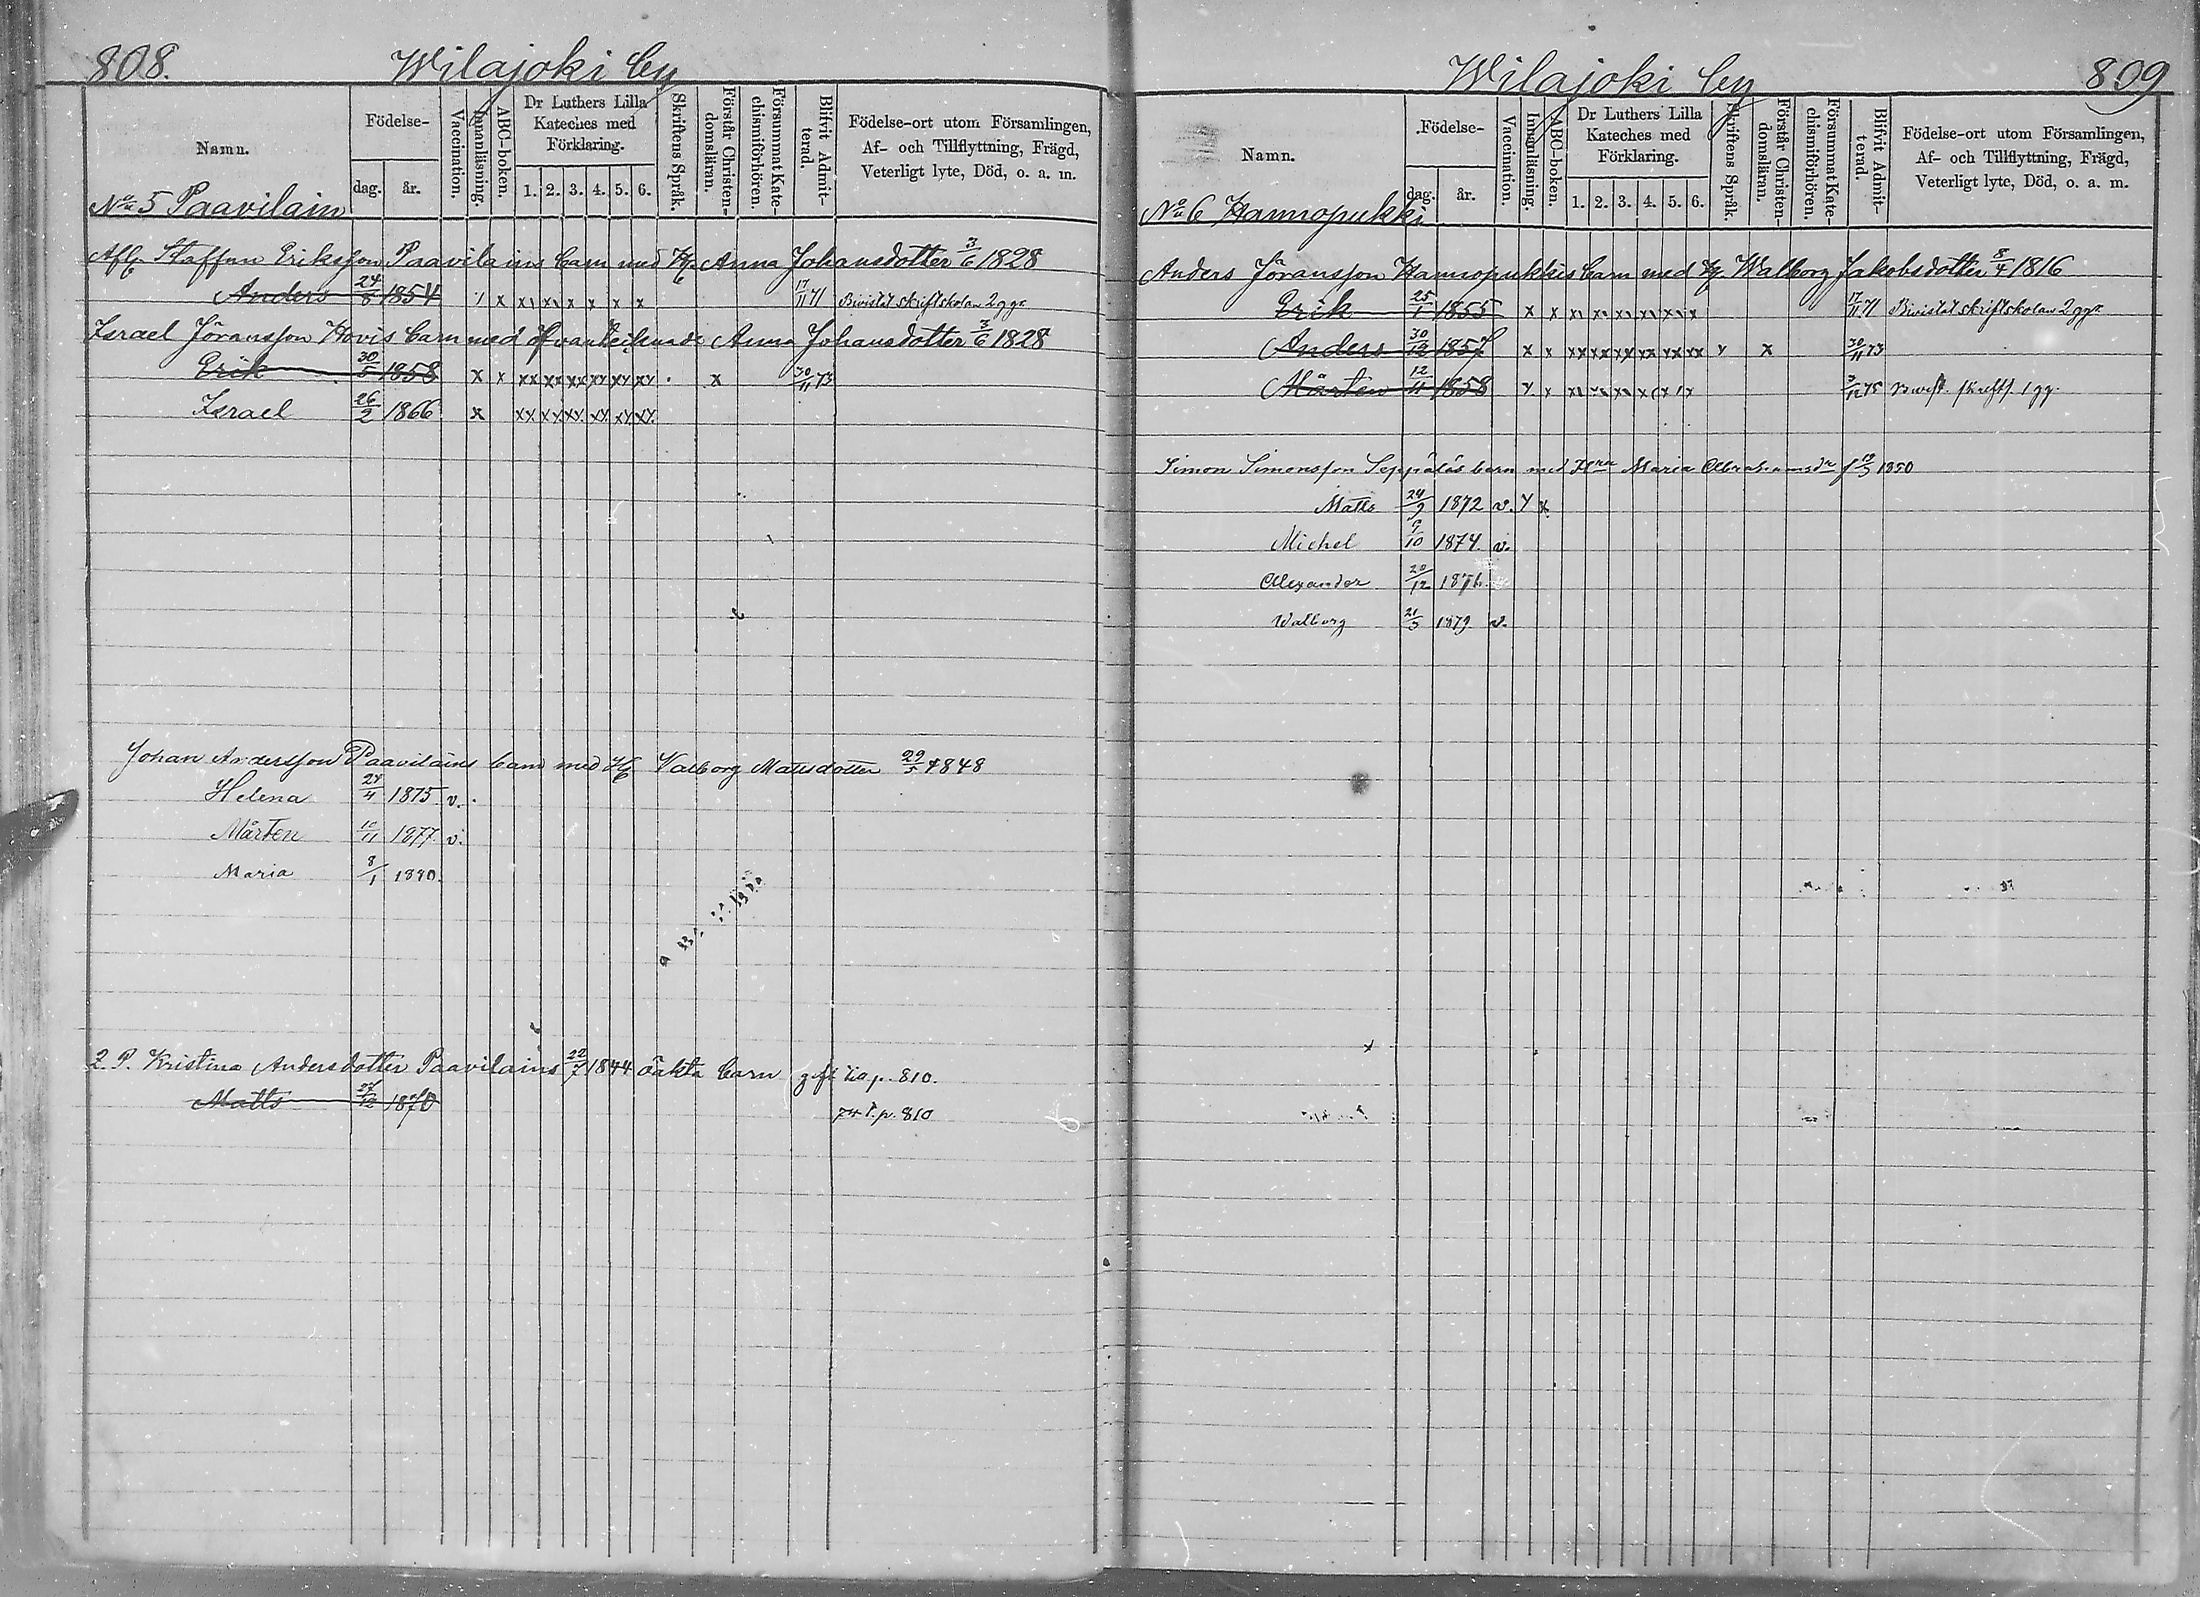 808.
Wilajoki by
Namn.
Födelse-
dag.
år.
Vaccination.
Innanläsning.
ABC-boken.
Dr Luthers Lilla
Kateches med
Förklaring.
1. 2. 3. 4. 5. 6.
Skriftens Språk.
Förstår Christen-
domsläran.
Försummat Kate-
chismiförhören.
Blifvit Admit-
terad.
Födelse-ort utom Församlingen,
Af- och Tillflyttning, Frägd,
Veterligt lyte, Död, o. a. m.
No 5 Paavilain
Afl. Staffan Eriksson Paavilains barn med H. Anna Johansdotter 3/6 1828
Anders 1854 x x x x x x 17/11 71 Bivistat skriftskolan 2 ggr
Israel Jöransson Hovis barn med ofvantecknade Anna Johansdotter 3/6 1828
Erik 30/5 1858 x x xx xx xx xx xx xx x 30/11 73
Israel 26/2 1866 x xx xx xx xx xx xx
Johan Andersson Paavilains barn med H. Valborg Mattsdotter 29/5 1848
Helena 1875 v.
Mårten 1877. v.
Maria 8/1 1880.
2. P. Kristina Andersdotter Paavilains 22/7 1844 oäkta barn gift till p. 810.
Matts 27/12 1870 p. 810
Wilajoki by
809
Namn.
Födelse-
dag.
år.
Vaccination.
Innanläsning.
ABC-boken.
Dr Luthers Lilla
Kateches med
Förklaring.
1. 2. 3. 4. 5. 6.
Skriftens Språk.
Förstår Christen-
domsläran.
Försummat Kate-
chismiförhören.
Blifvit Admit-
terad.
Födelse-ort utom Församlingen,
Af- och Tillflyttning, Frägd,
Veterligt lyte, Död, o. a. m.
No 6 Hannopukki
Anders Jöransson Hannopukkis barn med H. Walborg Jakobsdotter 8/4 1816
Erik 25/1 1855 x x 17/11 71 Bivistat skriftskolan 2 ggr
Anders 30/12 1857 x x xx xx xx xx xx xx x 30/11 73
Mårten 12/11 1858 x 3/12 75 Bivist. skrifts. 1 gg.
Simon Simonsson Seppäläs barn med Maria Abrahamsdr 1850
Matts 24/9 1872 v. x
Michel 9/10 1874. v.
Alexander 20/12 1876.
Walborg 21/5 1879 v.